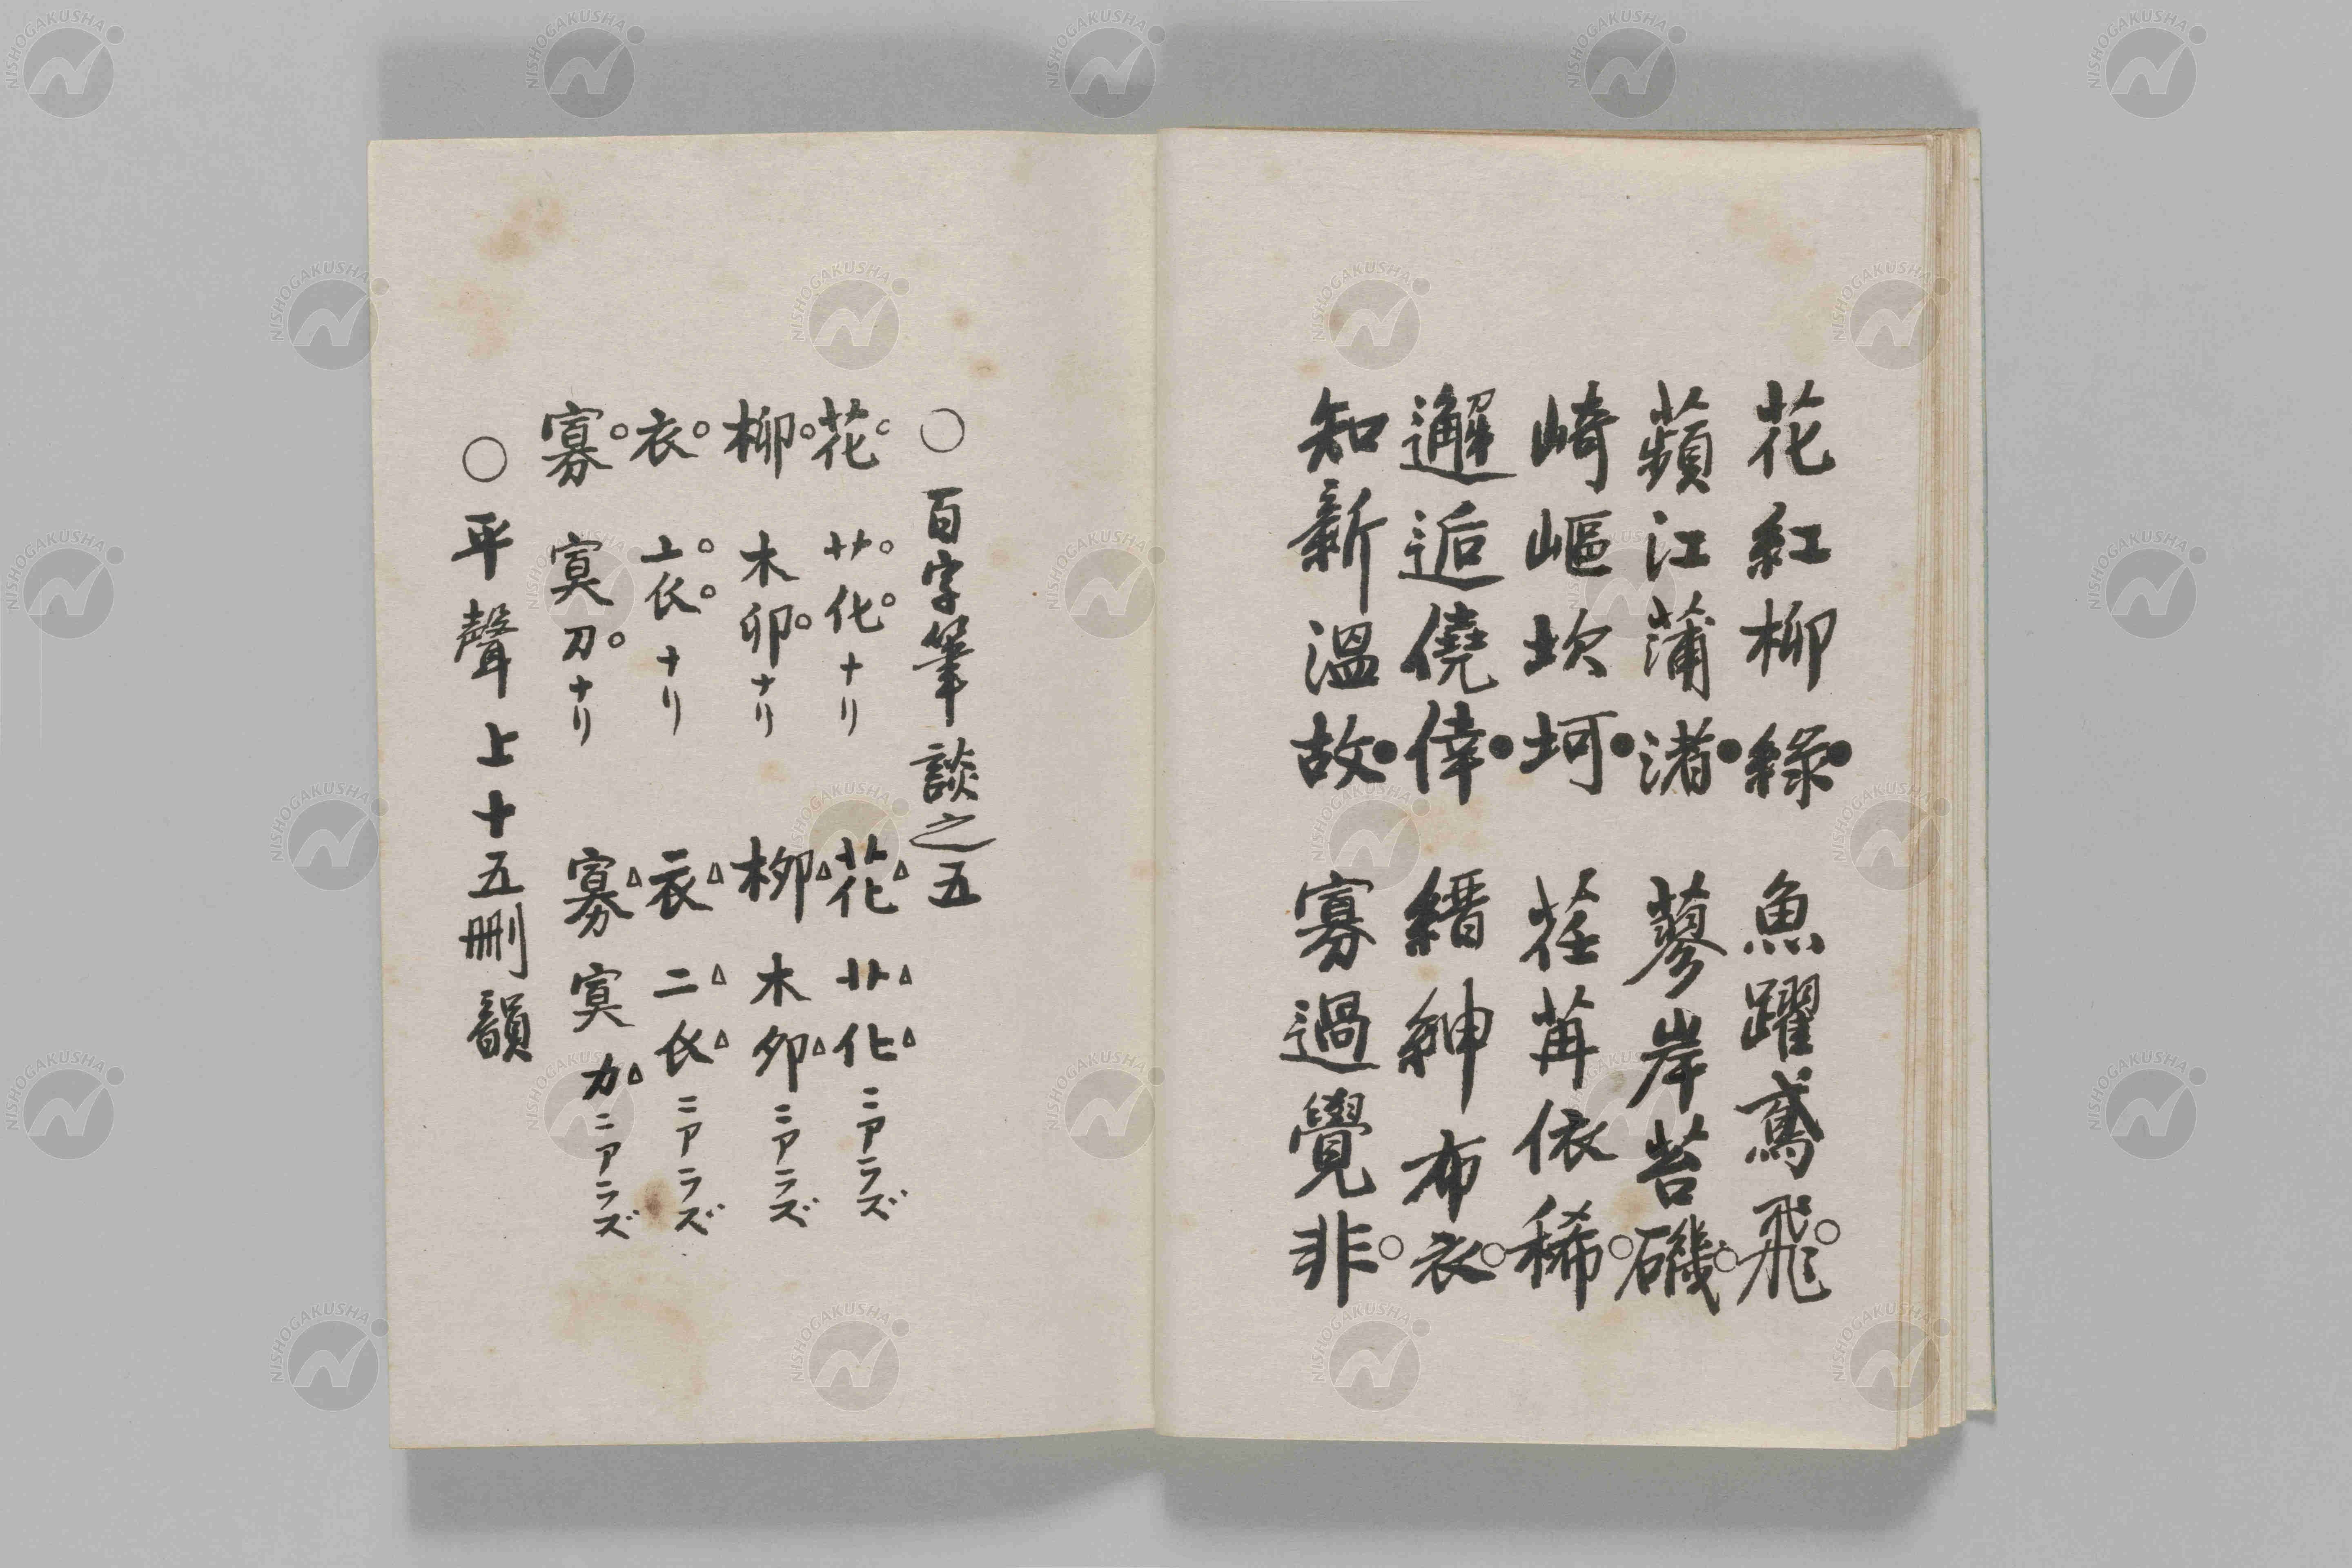 花紅柳綠 魚躍鳶飛
蘋江蒲渚 蓼岸苔磯
崎嶇坎坷 荏苒依稀
邂逅僥倖 縉紳布衣
知新溫故 寡過覺非
○百字筆談之五
花 艹化ナリ 花 艹化ニアラズ
柳 木卯ナリ 柳 木夘ニアラズ
衣 亠𧘇ナリ 衣 二𧘇ニアラズ
寡 寞刀ナリ 寡 寞力ニアラズ
○平聲上十五刪韻
NISHOGAKUSHA